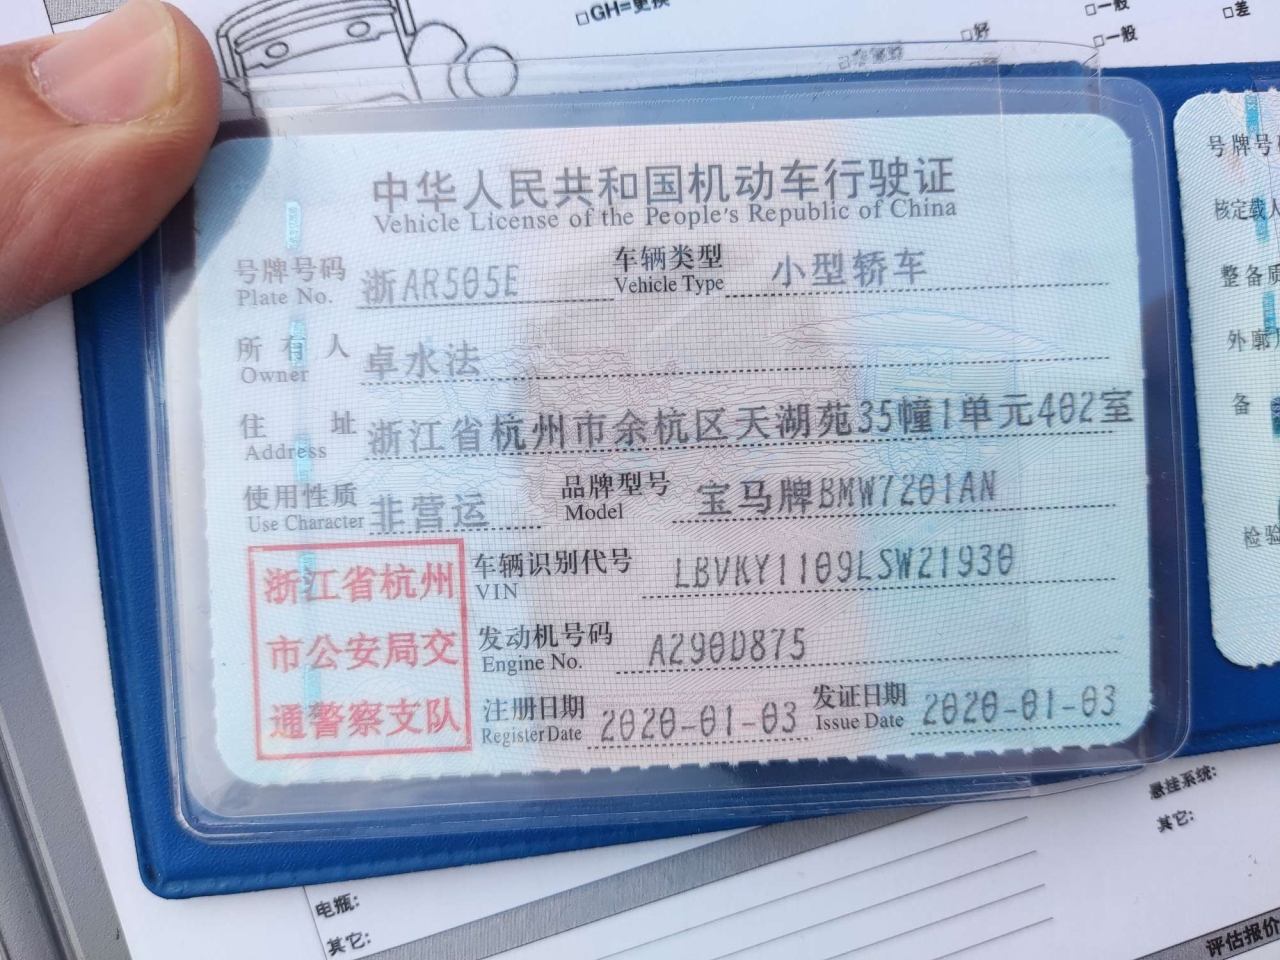 □GH=更换
□好
□一般
□差
□一般
中华人民共和国机动车行驶证
Vehicle License of the People's Republic of China
号牌号码 浙AR505E 车辆类型 小型轿车
Plate No. Vehicle Type
所有人 卓水法
Owner
住址 浙江省杭州市余杭区天湖苑35幢1单元402室
Address
使用性质 非营运 品牌型号 宝马牌BMW7201AN
Use Character Model
浙江省杭州
市公安局交
通警察支队
车辆识别代号 LBVKY1109LSW21930
VIN
发动机号码 A290D875
Engine No.
注册日期 2020-01-03 发证日期 2020-01-03
Register Date Issue Date
号牌号
核定载人
整备质
外廓
备
检验
悬挂系统:
其它:
电瓶:
其它:
评估报价